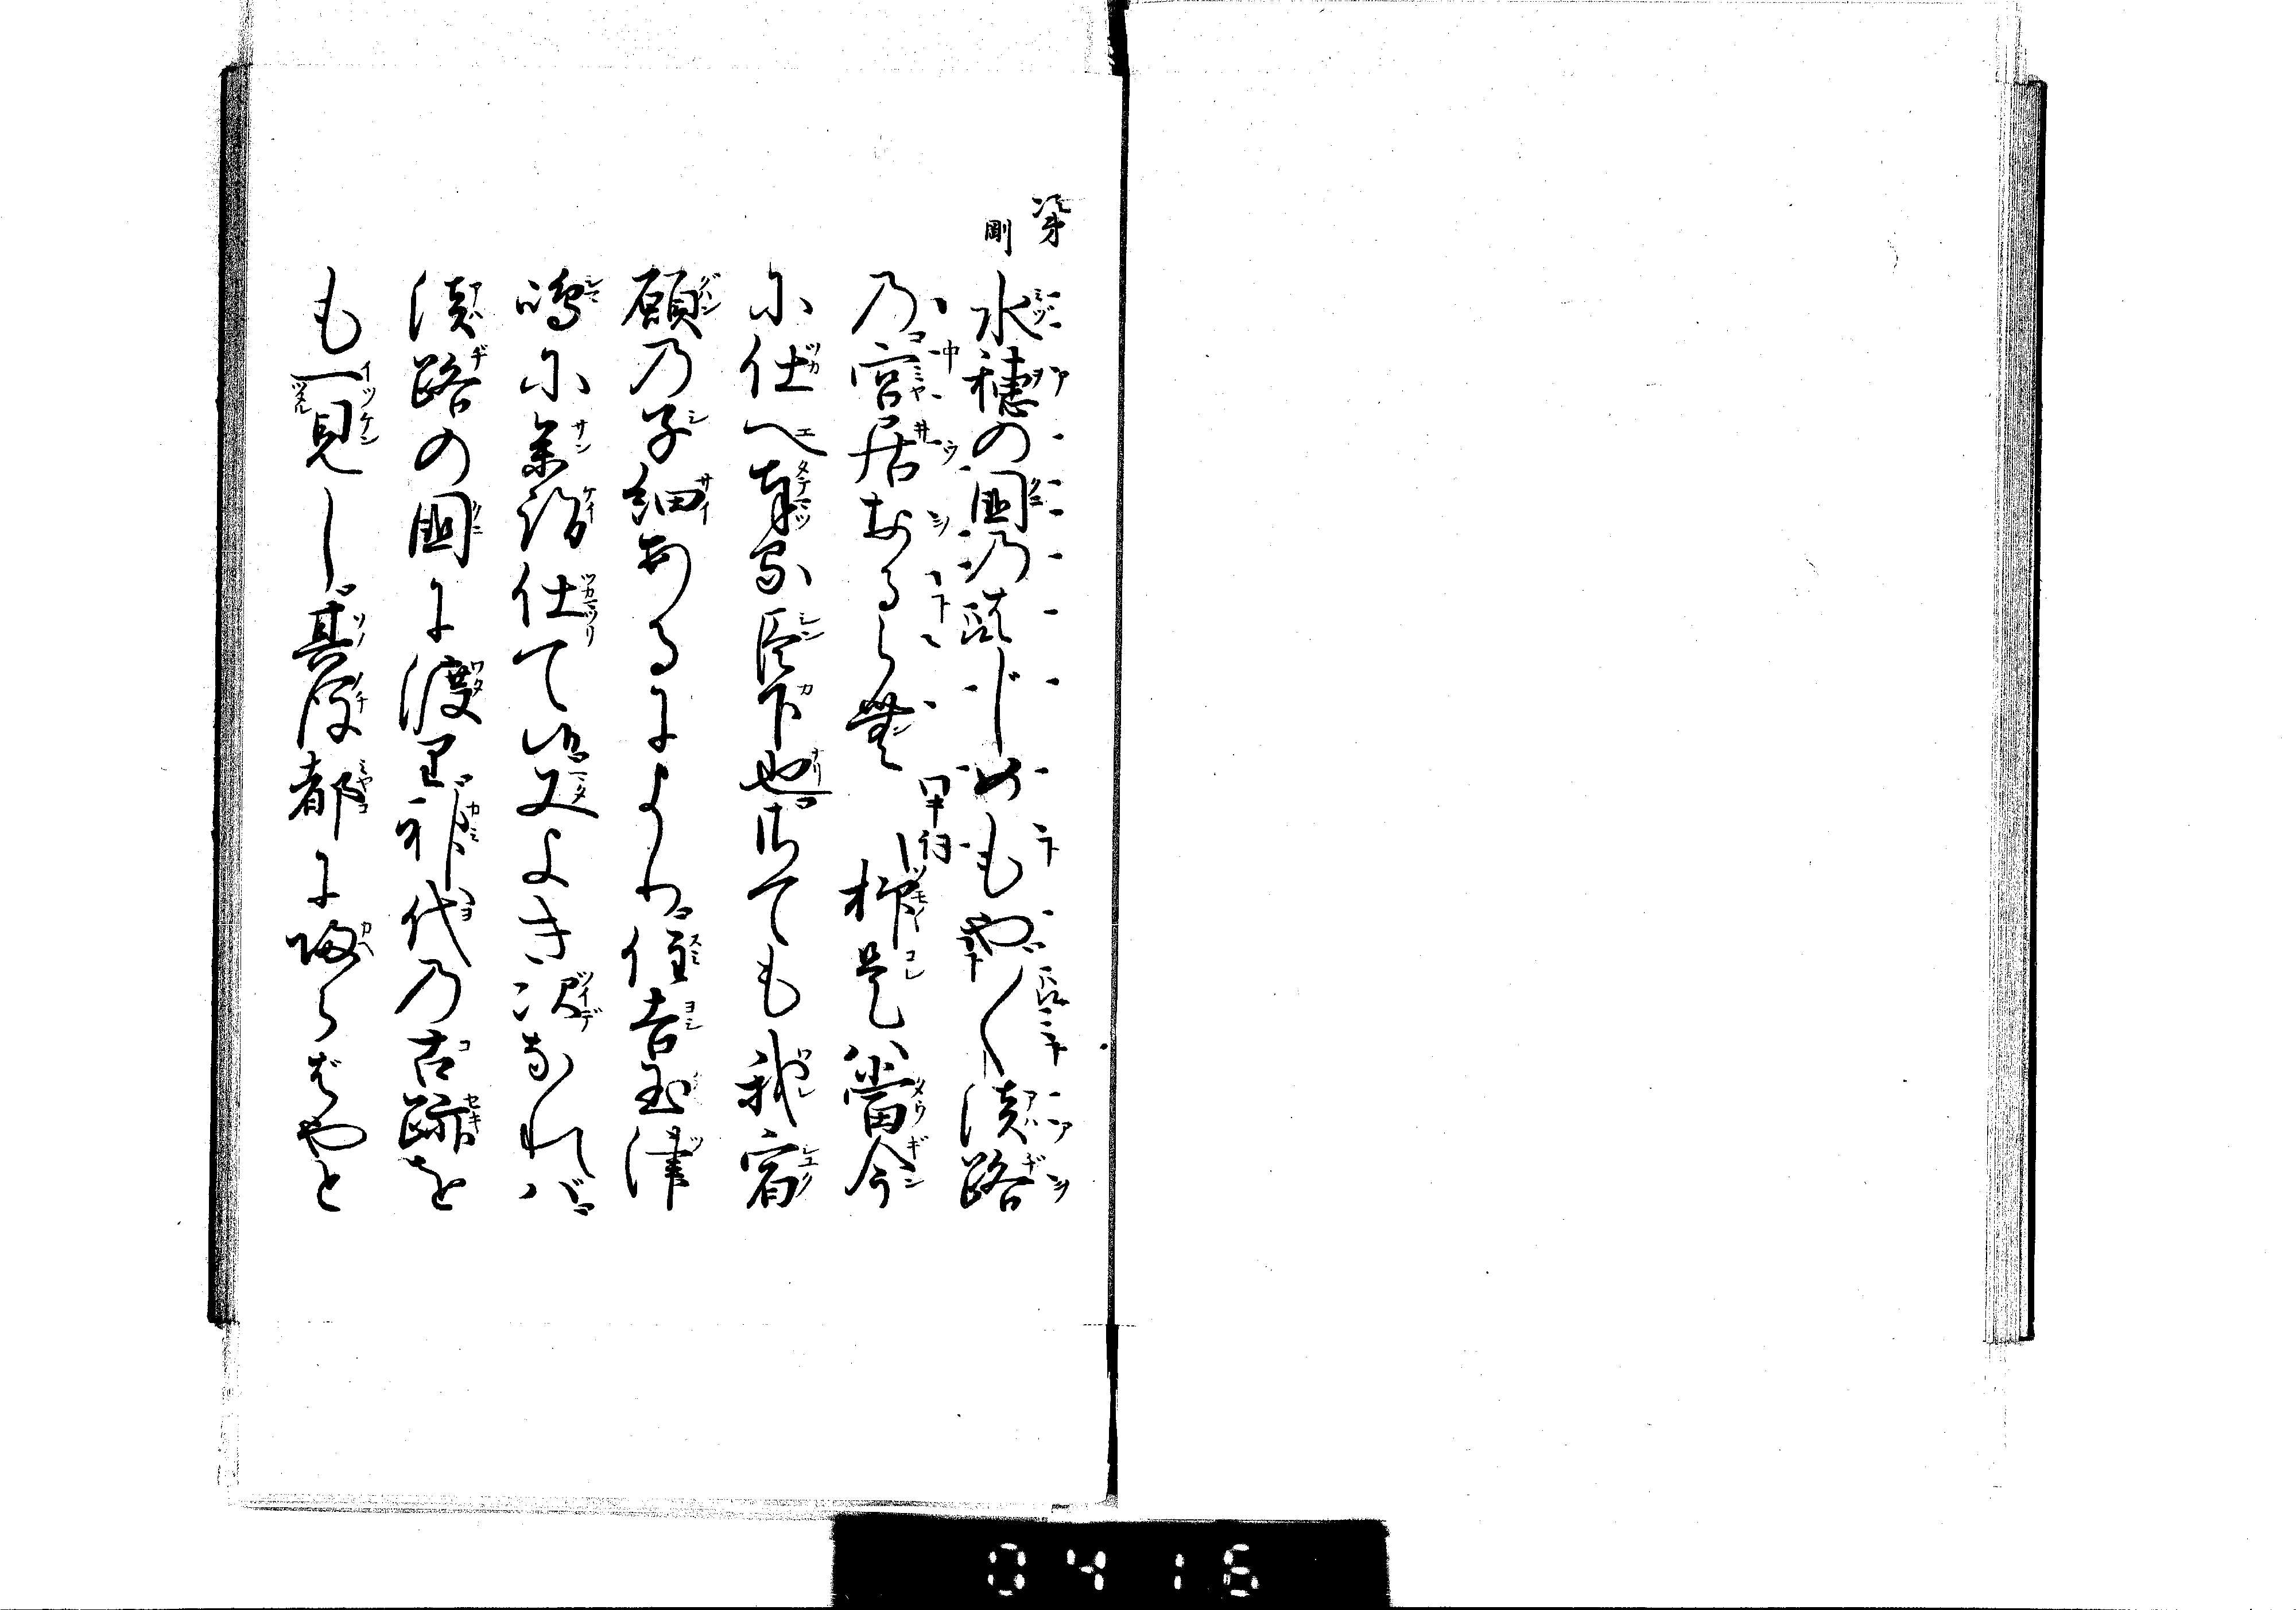 次第
剛
水穂の国乃はじめもや〱淡路
乃宮居なるら無 抑是ハ當今
に仕へ奉る臣下也扨ても我宿
願乃子細あるにより住吉玉津
嶋に参詣仕て候又よき次なれバ
淡路の国に渡里神代乃古跡を
も一見し其後都に帰らばやと
0416